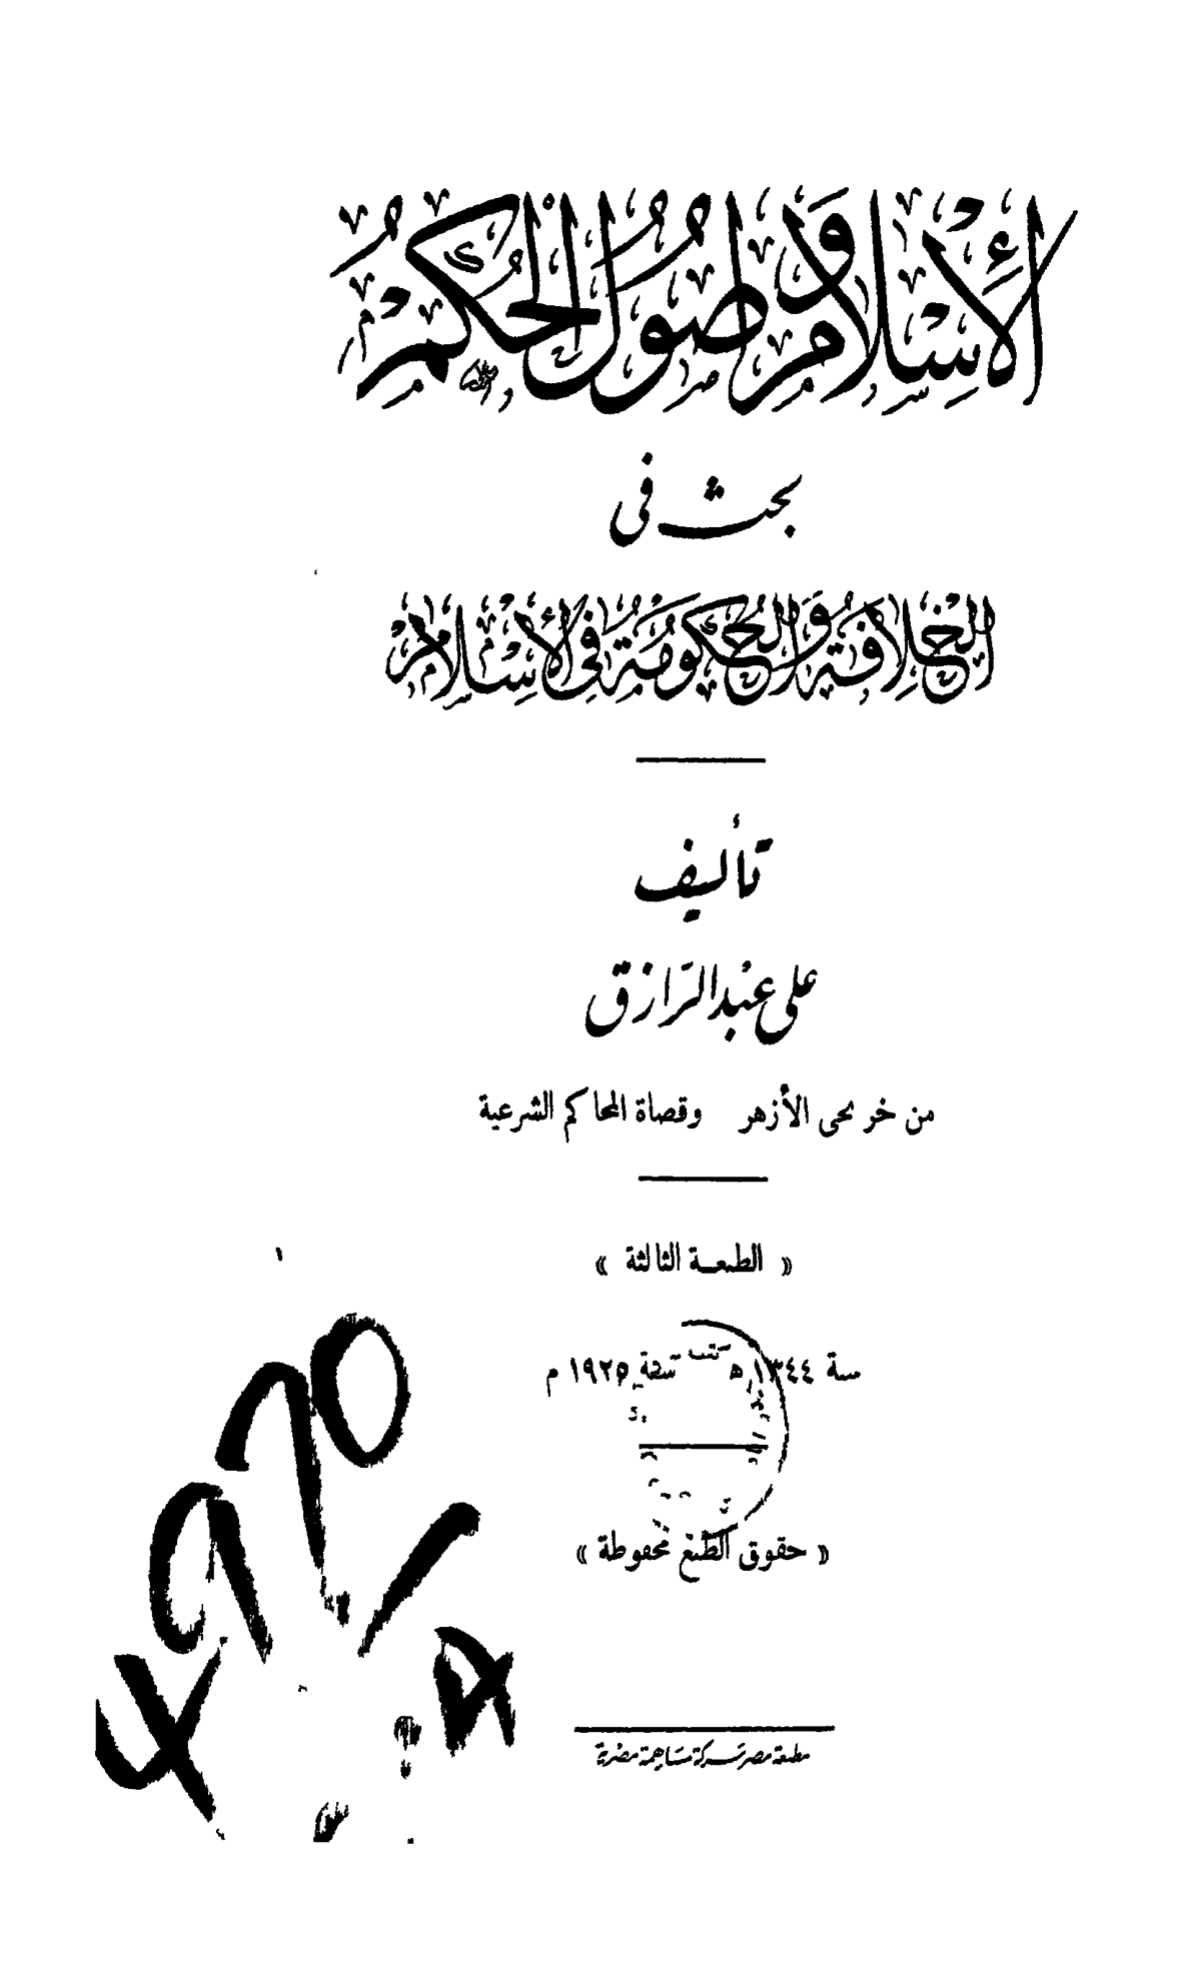 الإسلام وأصول الحكم
بحث في
الخلافة والحكومة في الإسلام
تأليف
على عبد الرازق
من خريجى الأزهر وقضاة المحاكم الشرعية
« الطبعة الثالثة »
سنة ١٣٤٤ هـ سنة ١٩٢٥ م
« حقوق الطبع محفوظة »
مطبعة مصر شركة مساهمة مصرية